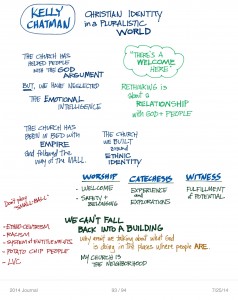 KELLY
CHATMAN
CHRISTIAN IDENTITY
in a PLURALISTIC
WORLD
THE CHURCH HAS
HELPED PEOPLE
WITH THE GOD
ARGUMENT
BUT, WE HAVE NEGLECTED
THE EMOTIONAL
INTELLIGENCE
"THERE'S A
WELCOME
HERE"
RETHINKING is
about a
RELATIONSHIP
with GOD + PEOPLE
THE CHURCH HAS
BEEN IN BED WITH
EMPIRE
and followed the
way of the MALL.
THE CHURCH
WE BUILT
around
ETHNIC
IDENTITY
WORSHIP
- WELCOME
- SAFETY +
BELONGING
CATECHESIS
EXPERIENCE
and
EXPLORATIONS
WITNESS
FULFILLMENT
of POTENTIAL
Don't play
"SMALL-BALL"
- ETHNOCENTRISM
- RACISM
- SYSTEM of ENTITLEMENTS
- POTATO CHIP PEOPLE
- LVC
WE CAN'T FALL
BACK INTO A BUILDING
Why aren't we talking about what GOD
is doing in the places where people ARE.
MY CHURCH IS
THE NEIGHBORHOOD
2014 Journal
93 / 94
7/25/14